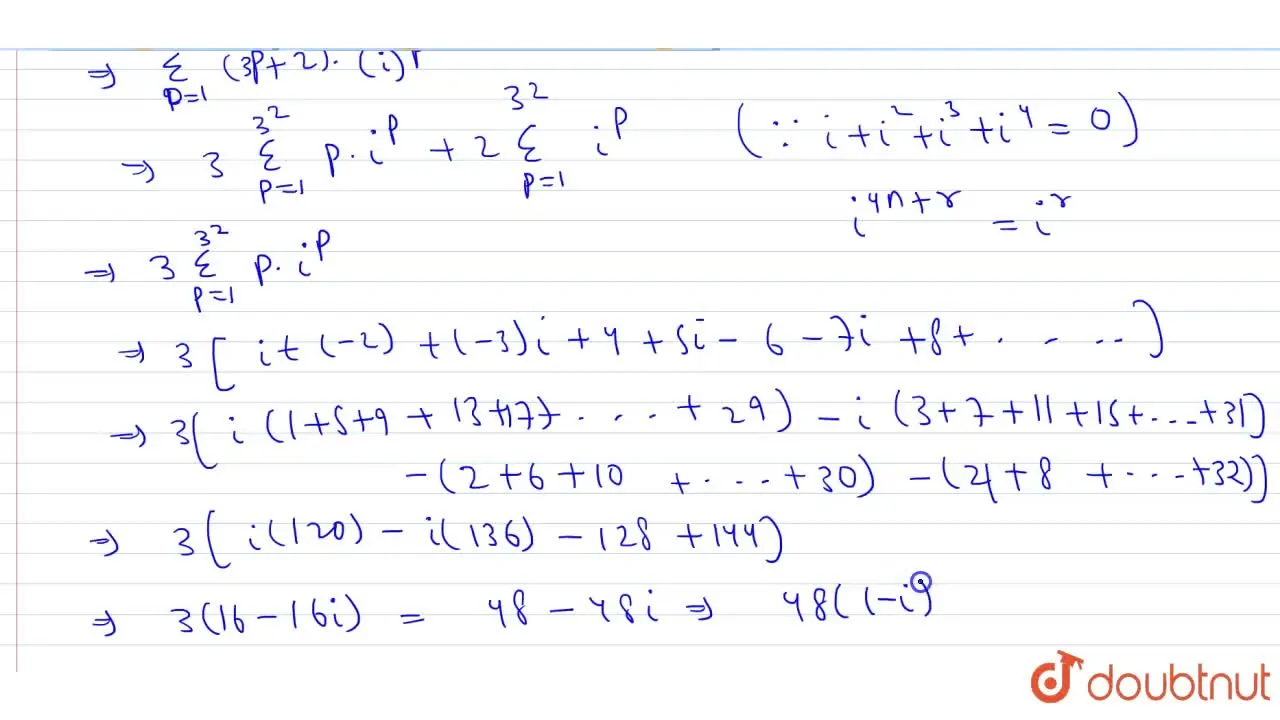 ⇒ Σ (3p+2)· (i)^p
p=1
⇒ 3 Σ_{p=1}^{32} p·i^p + 2 Σ_{p=1}^{32} i^p (∵ i+i²+i³+i⁴ = 0)
i^{4n+r} = i^r
⇒ 3 Σ_{p=1}^{32} p·i^p
⇒ 3[ i+(-2) +(-3)i +4 +5i - 6 - 7i +8+ · · · ·]
⇒ 3[ i(1+5+9 + 13+17+ · · · + 29) - i(3+7+11+15+···+31)
-(2+6+10 + ···+30) -(4+8 + ···+32)]
⇒ 3[ i(120) - i(136) - 128 +144]
⇒ 3(16-16i) = 48-48i ⇒ 48(1-i)
doubtnut